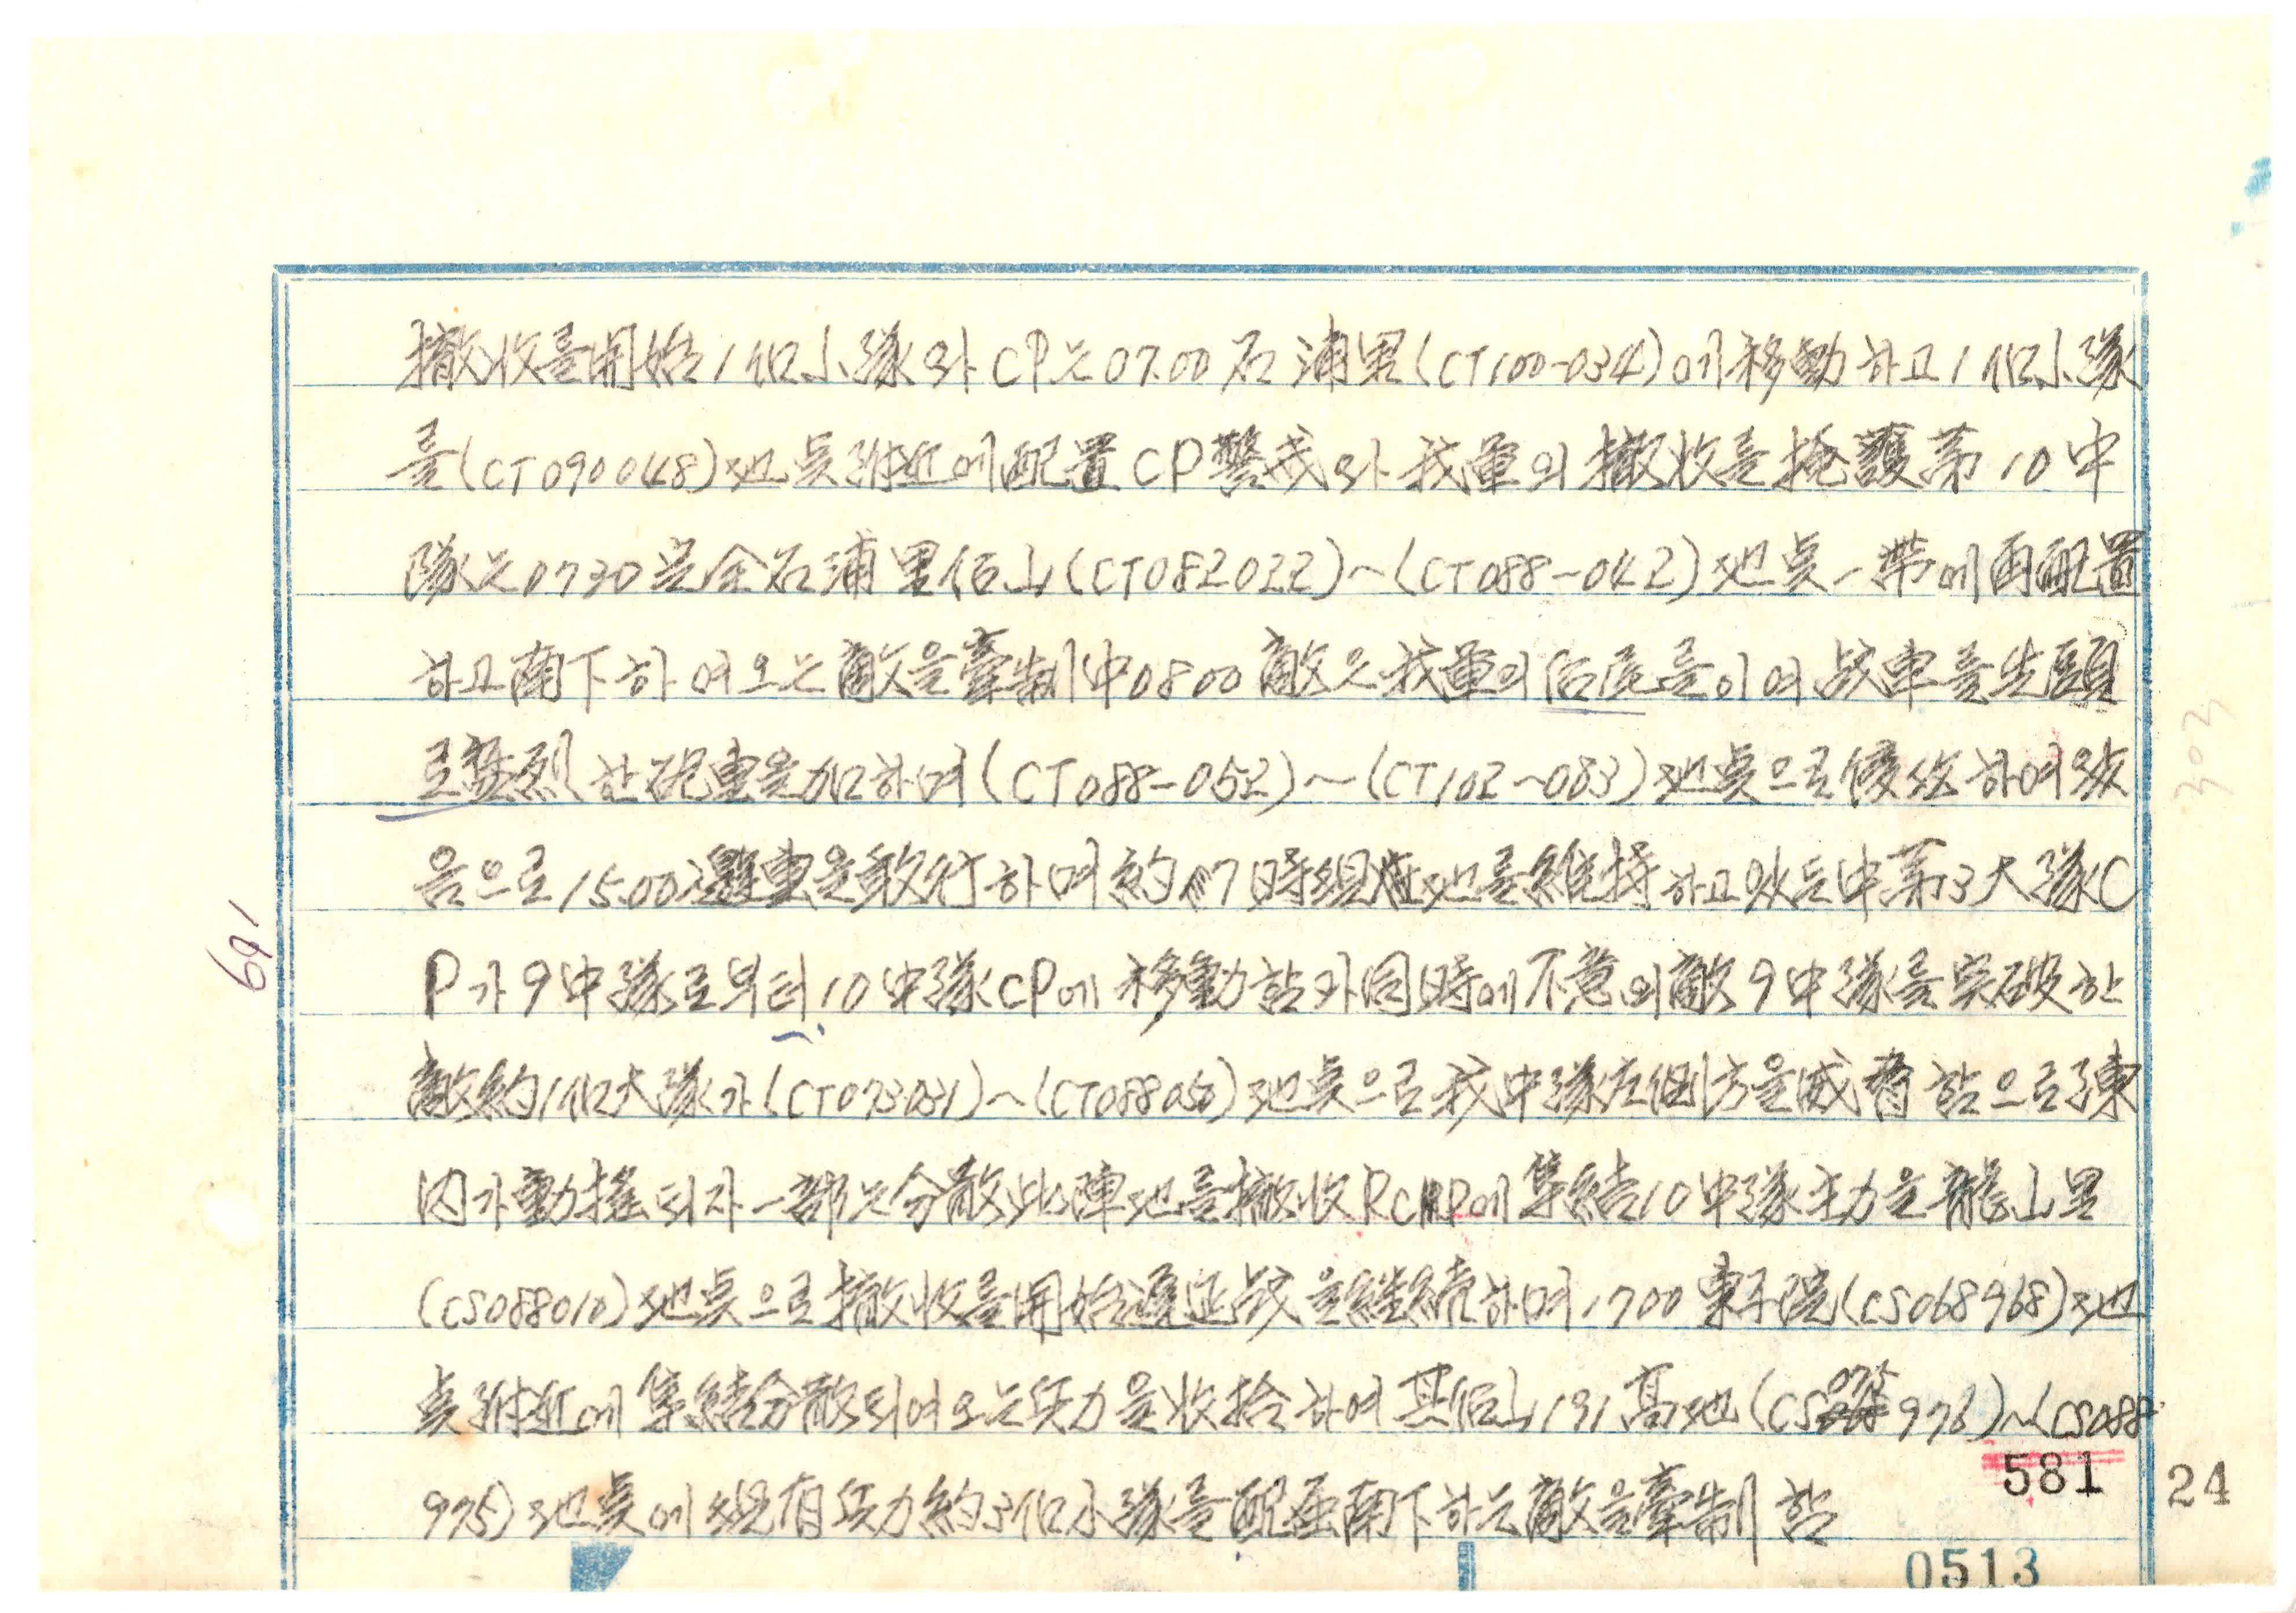 撤收를 開始 1個小隊와 CP는 07.00 石浦里(CT100-034)에 移動하고 1個小隊
를(CT090048)地点附近에 配置 CP 警戒와 我軍의 撤收를 掩護 第10中
隊는 0730 石浦里 后山(CT082022)~(CT088-042)地点一帶에 再配置
하고 南下하여오는 敵을 牽制中 0800 敵은 我軍의 后尾를 이여 战車를 先頭
로 猛烈한 砲轟을 加하며(CT088-052)~(CT102-083)地点으로 하여왔
음으로 15.00 遲 을 敢行하며 約 7時 地를 維持하고있든中 第3大隊C
P가 9中隊로부터 10中隊CP에 移動함과 同時에 不意의 敵 9中隊를 突破한
敵約 1個大隊가(CT073031)~(CT088050)地点으로 我中隊左側方을 威脅함으로 隊
内가 動搖되자 一部는 分散 此陣地를 撤收 에 集結 10中隊主力을 龍山里
(CS088010)地点으로 撤收를 開始 遲延战을 継続하며 1700 東子院(CS068968)地
点附近에 集結 分散되여오는 兵力을 收拾하여 其后山 191高地(CS075976)~(CS088
975)地点에 現有兵力 約3個小隊를 配 南下하는 敵을 牽制함
691
303
581
24
0513